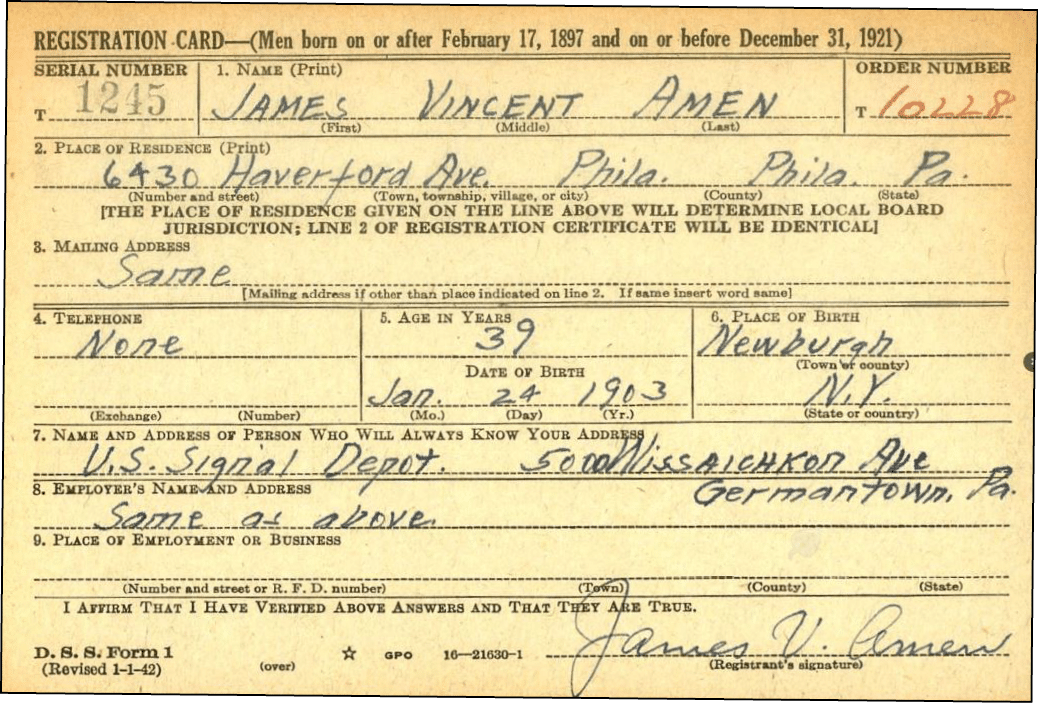 REGISTRATION CARD—(Men born on or after February 17, 1897 and on or before December 31, 1921)
SERIAL NUMBER
T 1245
1. NAME (Print)
JAMES VINCENT AMEN
(First) (Middle) (Last)
ORDER NUMBER
T 10228
2. PLACE OF RESIDENCE (Print)
6430 Haverford Ave. Phila. Phila. Pa.
(Number and street) (Town, township, village, or city) (County) (State)
[THE PLACE OF RESIDENCE GIVEN ON THE LINE ABOVE WILL DETERMINE LOCAL BOARD
JURISDICTION; LINE 2 OF REGISTRATION CERTIFICATE WILL BE IDENTICAL]
3. MAILING ADDRESS
Same
[Mailing address if other than place indicated on line 2. If same insert word same]
4. TELEPHONE
None
(Exchange) (Number)
5. AGE IN YEARS
39
DATE OF BIRTH
Jan. 24 1903
(Mo.) (Day) (Yr.)
6. PLACE OF BIRTH
Newburgh
(Town or county)
N.Y.
(State or country)
7. NAME AND ADDRESS OF PERSON WHO WILL ALWAYS KNOW YOUR ADDRESS
U.S. Signal Depot. 5000 WissAICHKON Ave
Germantown, Pa.
8. EMPLOYER'S NAME AND ADDRESS
Same as above.
9. PLACE OF EMPLOYMENT OR BUSINESS
(Number and street or R. F. D. number) (Town) (County) (State)
I AFFIRM THAT I HAVE VERIFIED ABOVE ANSWERS AND THAT THEY ARE TRUE.
James V. Amen
(Registrant's signature)
D. S. S. Form 1
(Revised 1-1-42) (over) ☆ GPO 16—21630-1